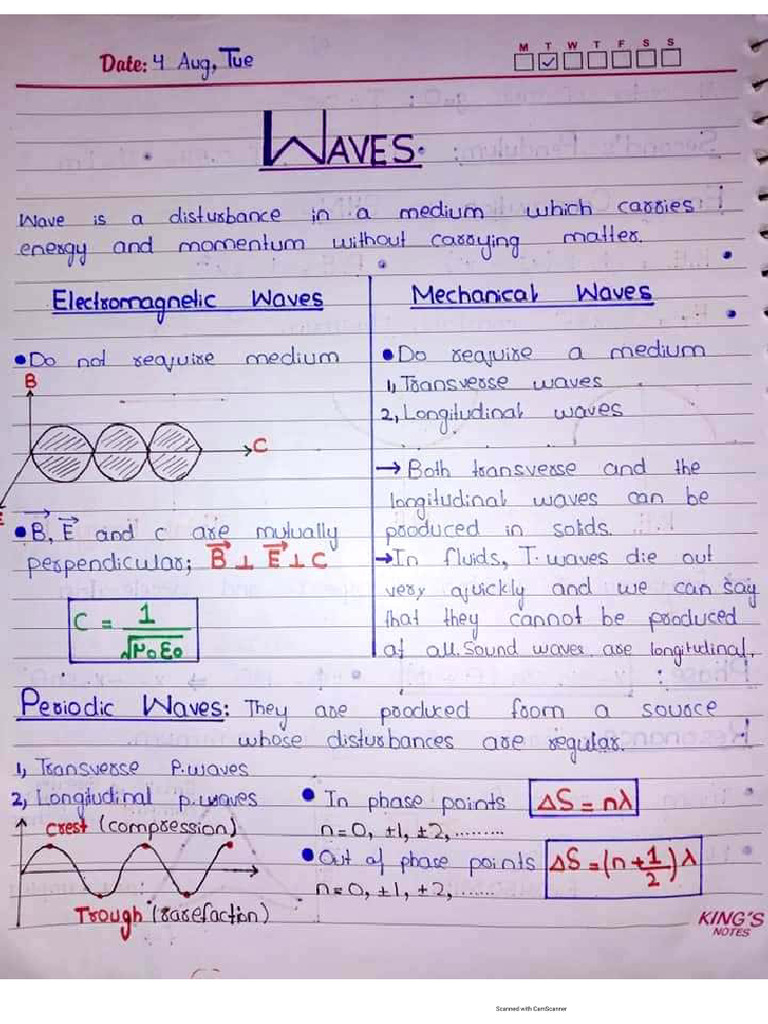 Date: 4 Aug, Tue
M T W T F S S
WAVES.
Wave is a disturbance in a medium which carries
energy and momentum without carrying matter.
Electromagnetic Waves
• Do not require medium
B
C
E
• B⃗, E⃗ and c are mutually
perpendicular; B⃗ ⊥ E⃗ ⊥ C
C = 1/√μ0ε0
Mechanical Waves
• Do require a medium
1, Transverse waves
2, Longitudinal waves
→ Both transverse and the
longitudinal waves can be
produced in solids.
→ In fluids, T. waves die out
very quickly and we can say
that they cannot be produced
at all. Sound waves are longitudinal.
Periodic Waves: They are produced from a source
whose disturbances are regular.
1, Transverse P.waves
2, Longitudinal p.waves
Crest (compression)
Trough (rarefaction)
• In phase points ΔS = nλ
n=0, ±1, ±2, .........
• Out of phase points ΔS = (n+1/2)λ
n=0, ±1, ±2, .......
KING'S
NOTES
Scanned with CamScanner